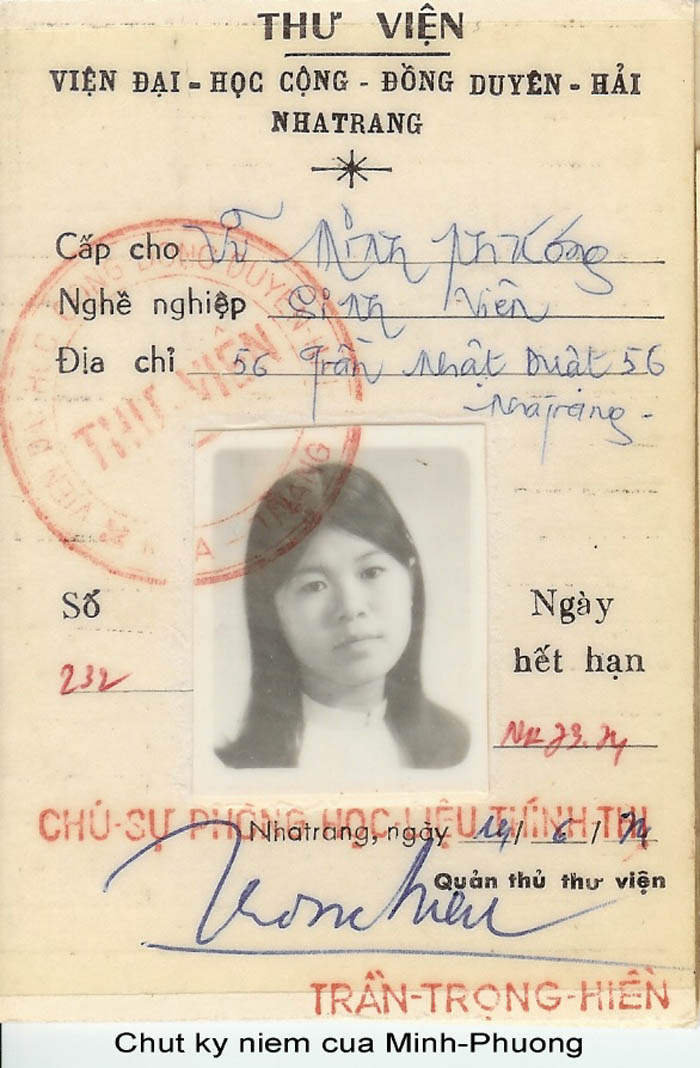 THƯ VIỆN
VIỆN ĐẠI - HỌC CỘNG - ĐỒNG DUYÊN - HẢI
NHATRANG
Cấp cho Vũ Minh Phương
Nghề nghiệp Sinh Viên
Địa chỉ 56 Trần Nhật Duật 56
Nhatrang -
THƯ VIỆN
Số
232
Ngày
hết hạn
NK 73.74
CHỦ-SỰ PHÒNG HỌC-LIỆU THÍNH THỊ
Nhatrang, ngày 14/ 6 / 74
Quản thủ thư viện
TRẦN-TRỌNG-HIỀN
Chut ky niem cua Minh-Phuong